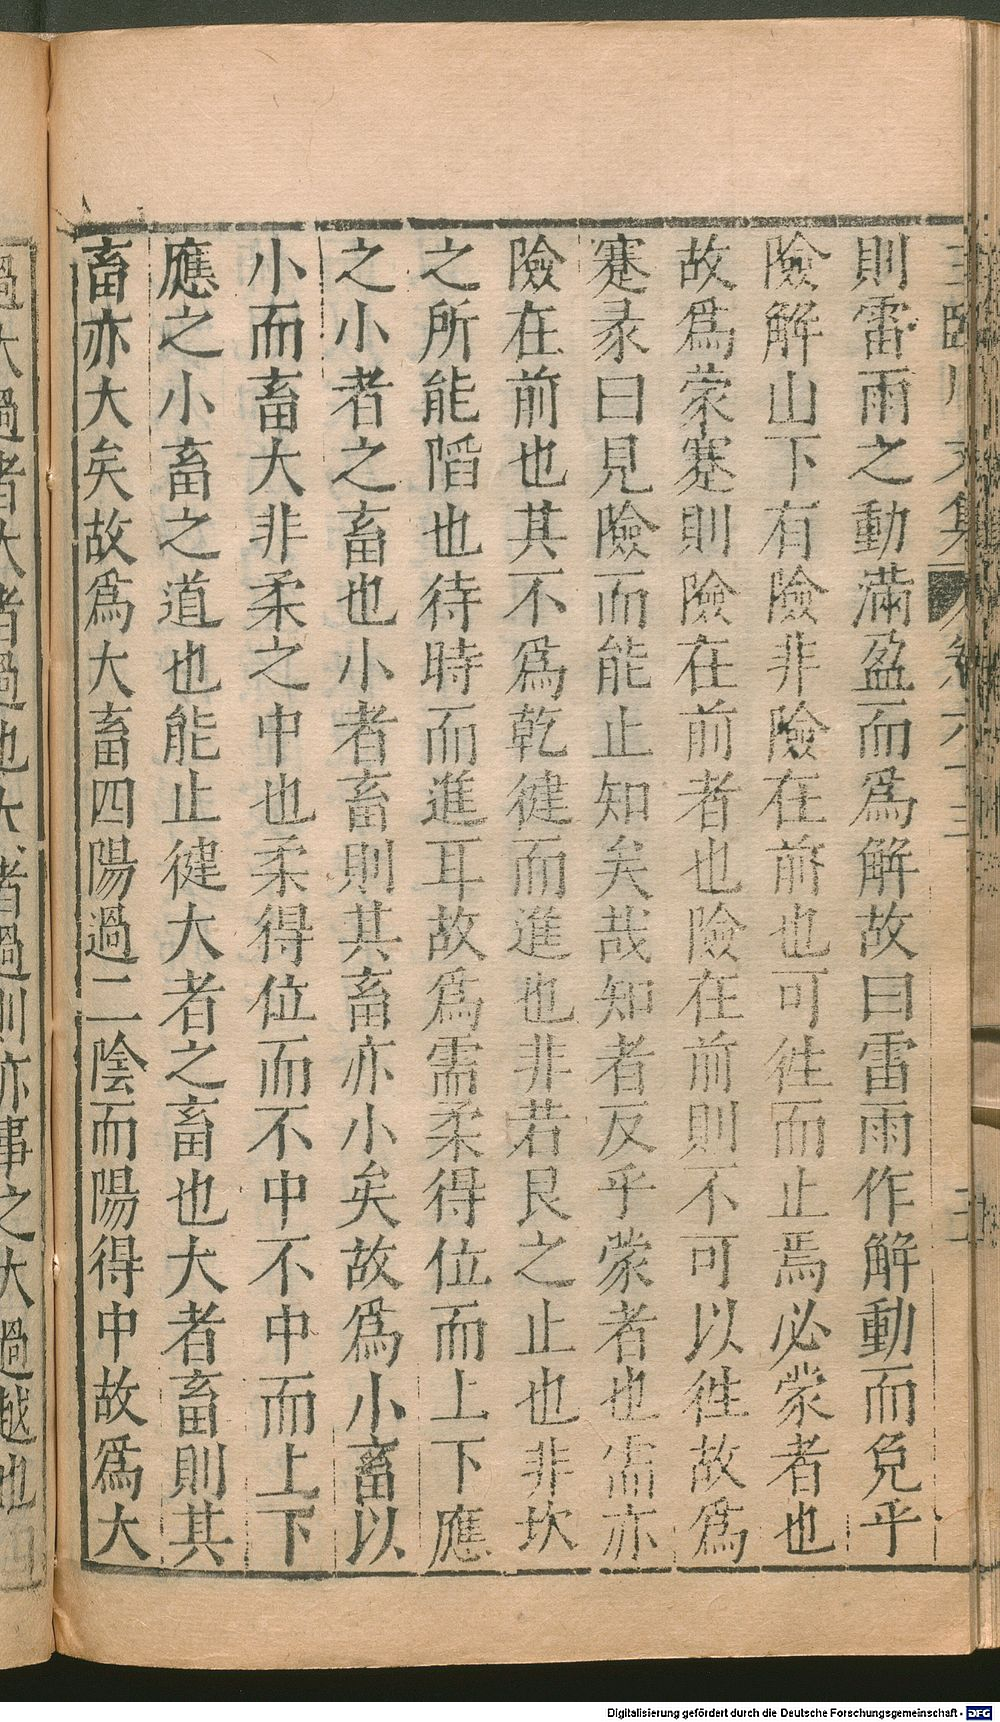 則雷雨之動滿盈而爲解故曰雷雨作解動而免乎
險解山下有險非險在前也可徃而止焉必蒙者也
故爲蒙蹇則險在前者也險在前則不可以徃故爲
蹇彖曰見險而能止知矣哉知者反乎蒙者也需亦
險在前也其不爲乾徤而進也非若艮之止也非坎
之所能陷也待時而進耳故爲需柔得位而上下應
之小者之畜也小者畜則其畜亦小矣故爲小畜以
小而畜大非柔之中也柔得位而不中不中而上下
應之小畜之道也能止徤大者之畜也大者畜則其
畜亦大矣故爲大畜四陽過二陰而陽得中故爲大
過大過者大者過也大者過則亦事之大過越也
Digitalisierung gefördert durch die Deutsche Forschungsgemeinschaft - DFG